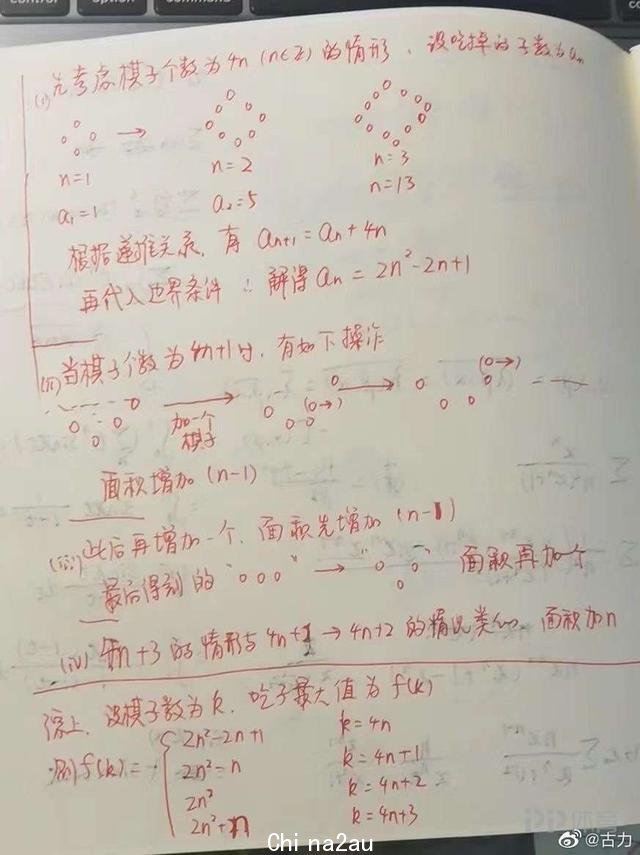 control option command
(i) 先考虑棋子个数为4n (n∈Z) 的情形, 设吃掉的子数为an
n=1 n=2 n=3
a1=1 a2=5 n=13
根据递推关系, 有 an+1=an+4n
再代入边界条件 ∴ 解得 an=2n²-2n+1
(ii) 当棋子个数为4n+1时, 有如下操作
(o→)
加一个
棋子
(o→)
面积增加 (n-1)
(iii) 此后再增加一个, 面积先增加 (n-1)
最后得到的 "o o o" → 面积再加1个
(iv) 4n+3 的情形与 4n+1 → 4n+2 的情况类似, 面积加n
综上, 设棋子数为k, 吃子最大值为f(k)
则f(k)=
2n²-2n+1 k=4n
2n²-n k=4n+1
2n² k=4n+2
2n²+n k=4n+3
Chi na2au
@古力